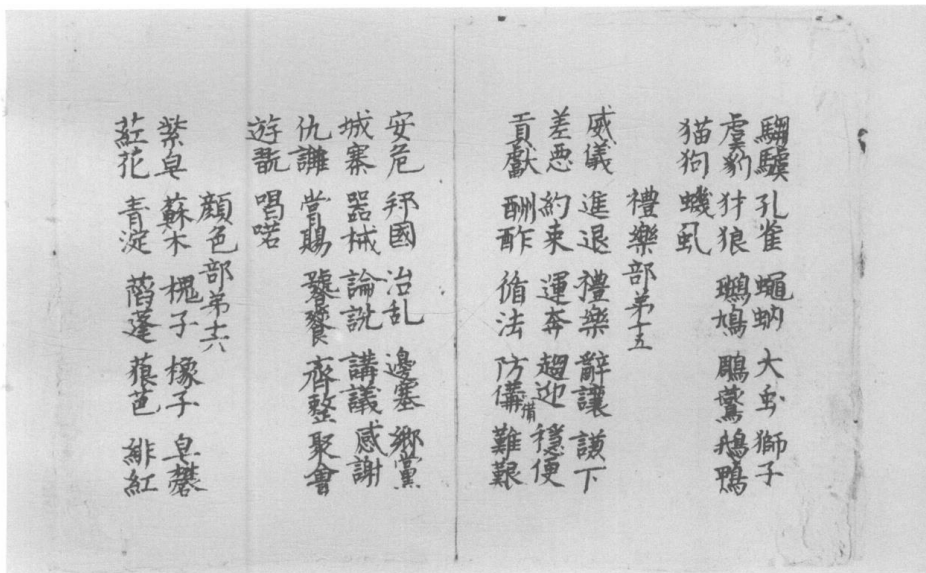 騶驥 孔雀 蠅蚋 大虫 獅子
虔豹 犲狼 鵶鳩 鵰鷲 鵝鴨
猫狗 蟣虱
禮樂部第十五
威儀 進退 禮樂 辭讓 謙下
差惡 約束 運奔 趨迎 穩便
貢獻 酬酢 循法 防備 難艱
安危 邦國 治乱 邊塞 鄉黨
城寨 器械 論說 講議 感謝
仇讎 賞賜 饗餐 齊整 聚會
遊翫 唱喏
顔色部第十六
紫皂 蘇木 槐子 橡子 皂礬
葒花 青淀 蓬 芭 緋紅